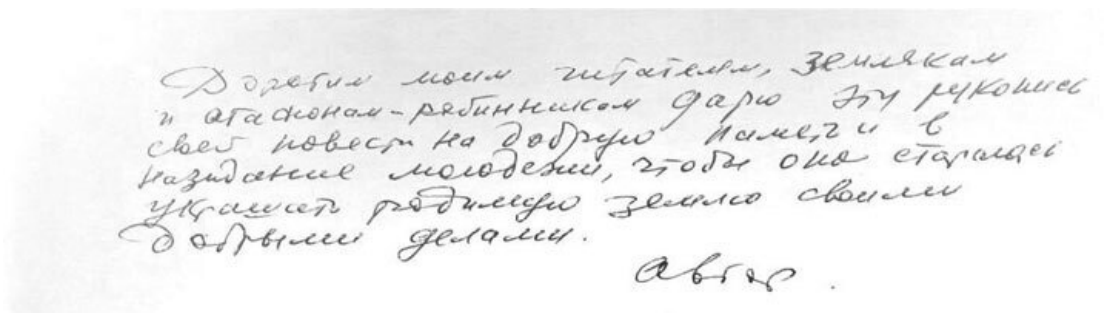 Дорогим моим читателям, землякам
и атасионам-рябинникам дарю эту рукопись
своей повести на добрую память и в
назидание молодежи, чтобы она старалась
украшать родимую землю своими
добрыми делами.
Автор.